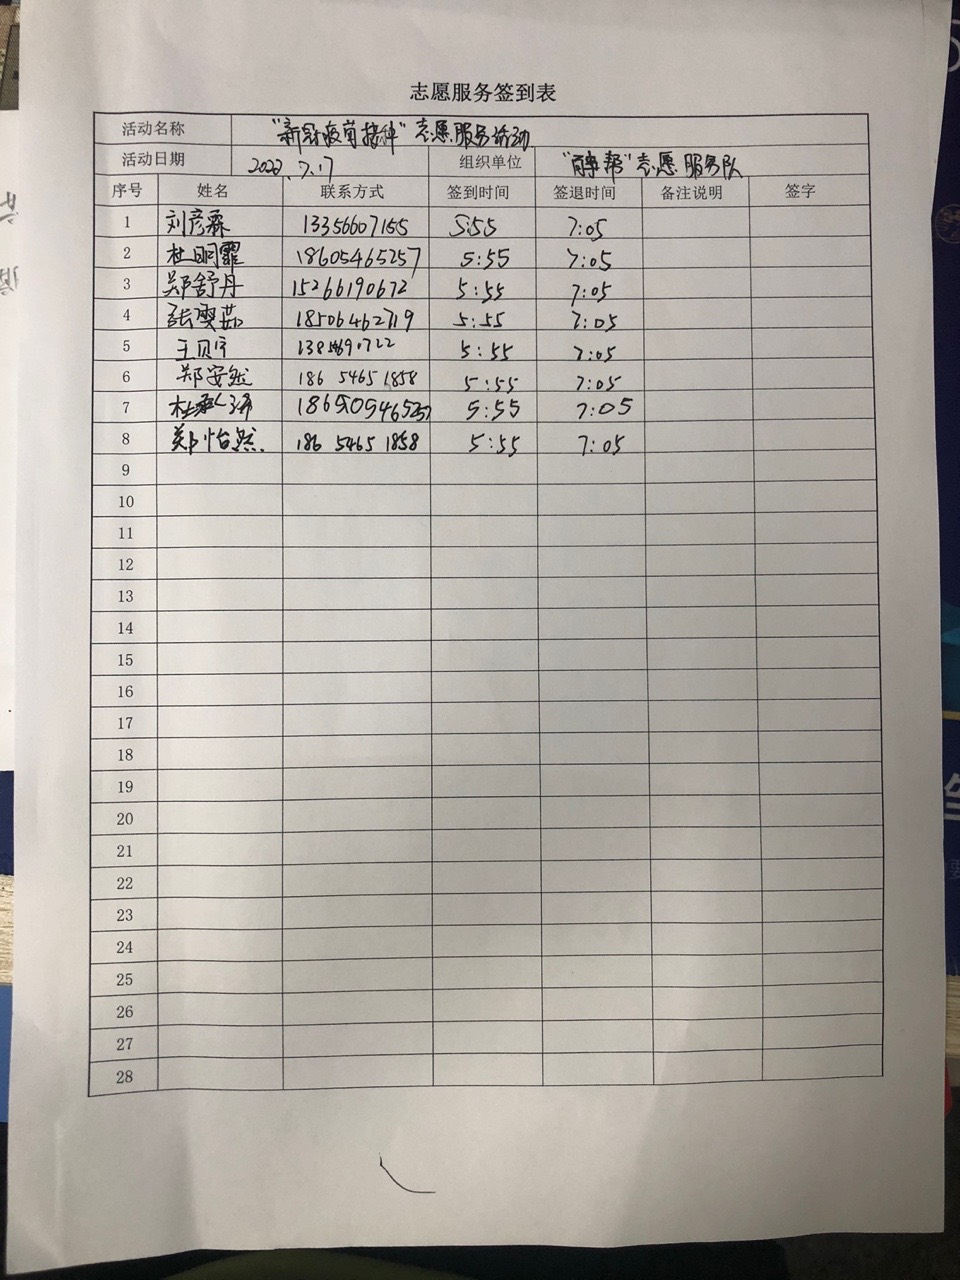 志愿服务签到表
活动名称 "新冠疫苗接种"志愿服务活动
活动日期 2022.7.17 组织单位 "百事帮"志愿服务队
序号 姓名 联系方式 签到时间 签退时间 备注说明 签字
1 刘彦霖 13356607155 5:55 7:05
2 杜明霏 18605465257 5:55 7:05
3 郑舒丹 15266190672 5:55 7:05
4 张雯茹 18506462719 5:55 7:05
5 王贝宁 5:55 7:05
6 郑安然 186 5465 1858 5:55 7:05
7 5:55 7:05
8 郑怡然 186 5465 1858 5:55 7:05
9
10
11
12
13
14
15
16
17
18
19
20
21
22
23
24
25
26
27
28